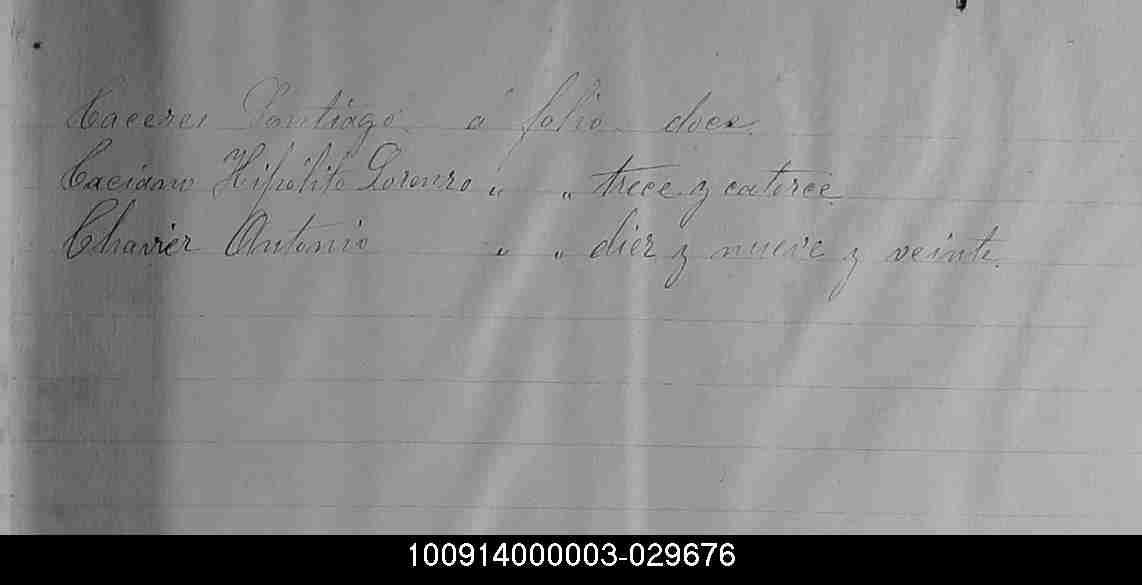 Caceres Santiago á folio doce.
Caciano Hipólito Lorenzo " " trece y catorce.
Chavier Antonio " " diez y nueve y veinte.
100914000003-029676